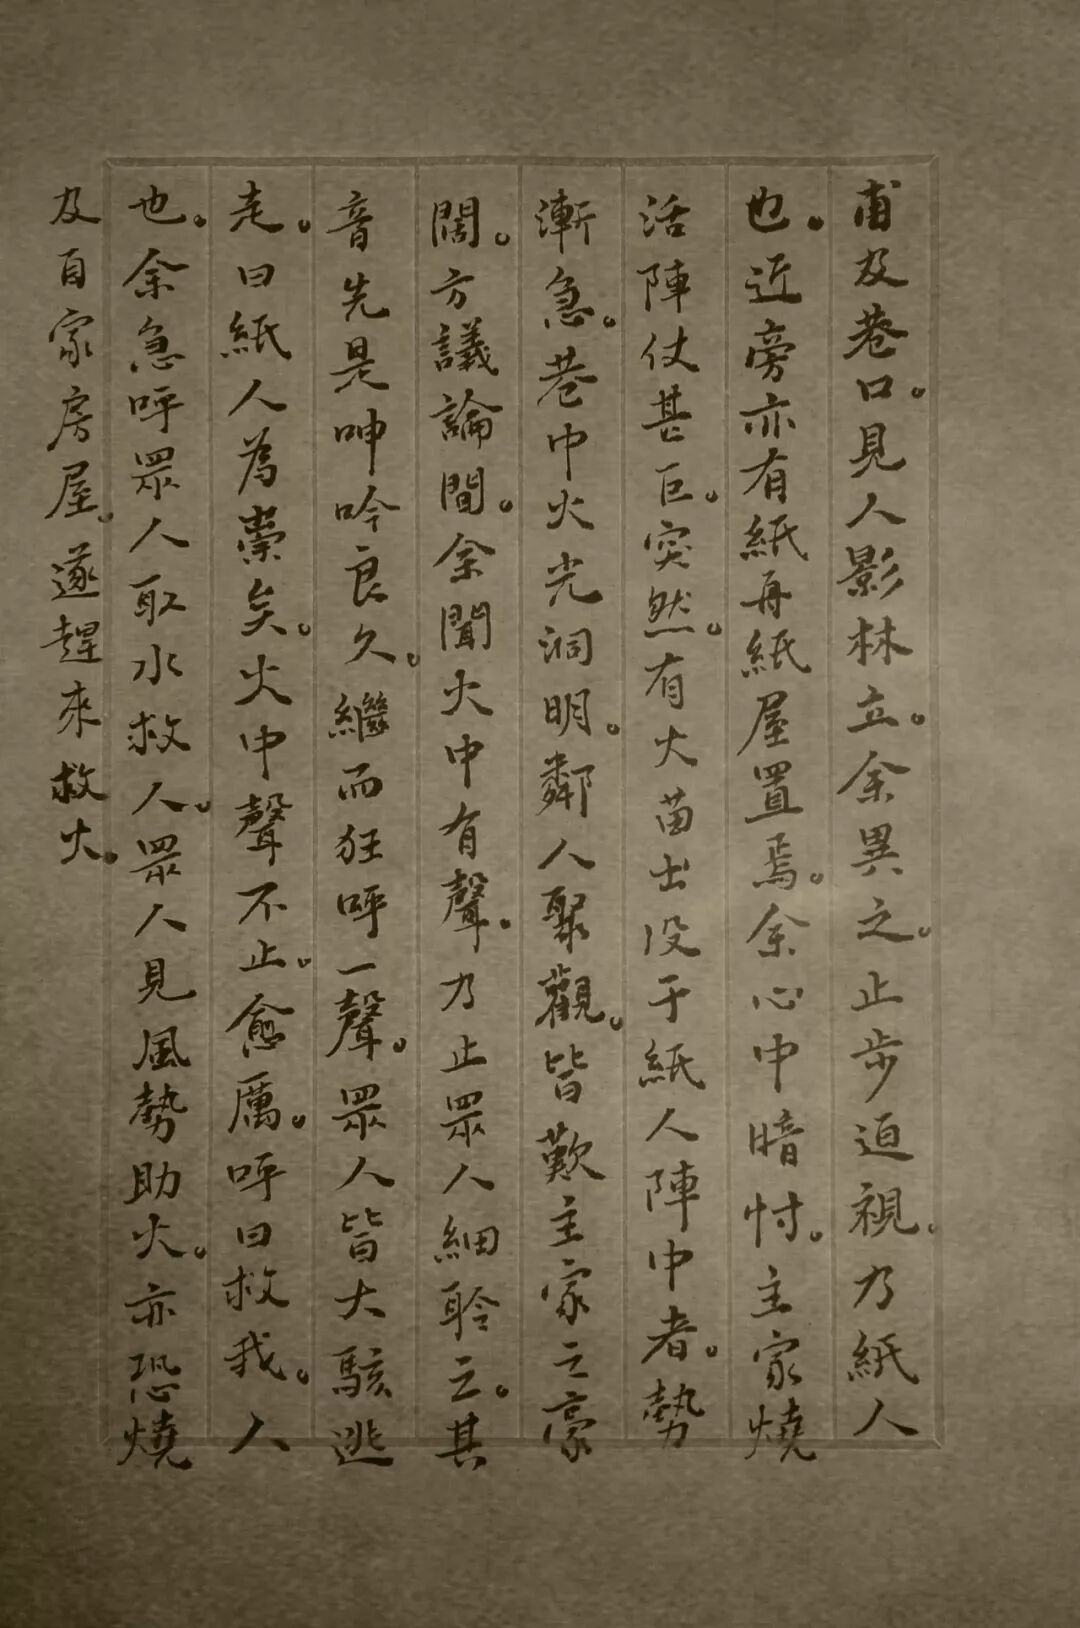 甫及巷口。見人影林立。余異之。止步迫視。乃紙人
也。近旁亦有紙再紙屋置焉。余心中暗忖。主家燒
活陣仗甚巨。突然。有火苗出没于紙人陣中者。勢
漸急。巷中火光洞明。鄰人聚觀。皆歎主家之豪
闊。方議論間。余聞火中有聲。乃止眾人細聆之。其
音先是呻吟良久。繼而狂呼一聲。眾人皆大駭逃
走。曰紙人為祟矣。火中聲不止。愈厲。呼曰救我。人
也。余急呼眾人取水救人。眾人見風勢助火。亦恐燒
及自家房屋。遂趕來救火。